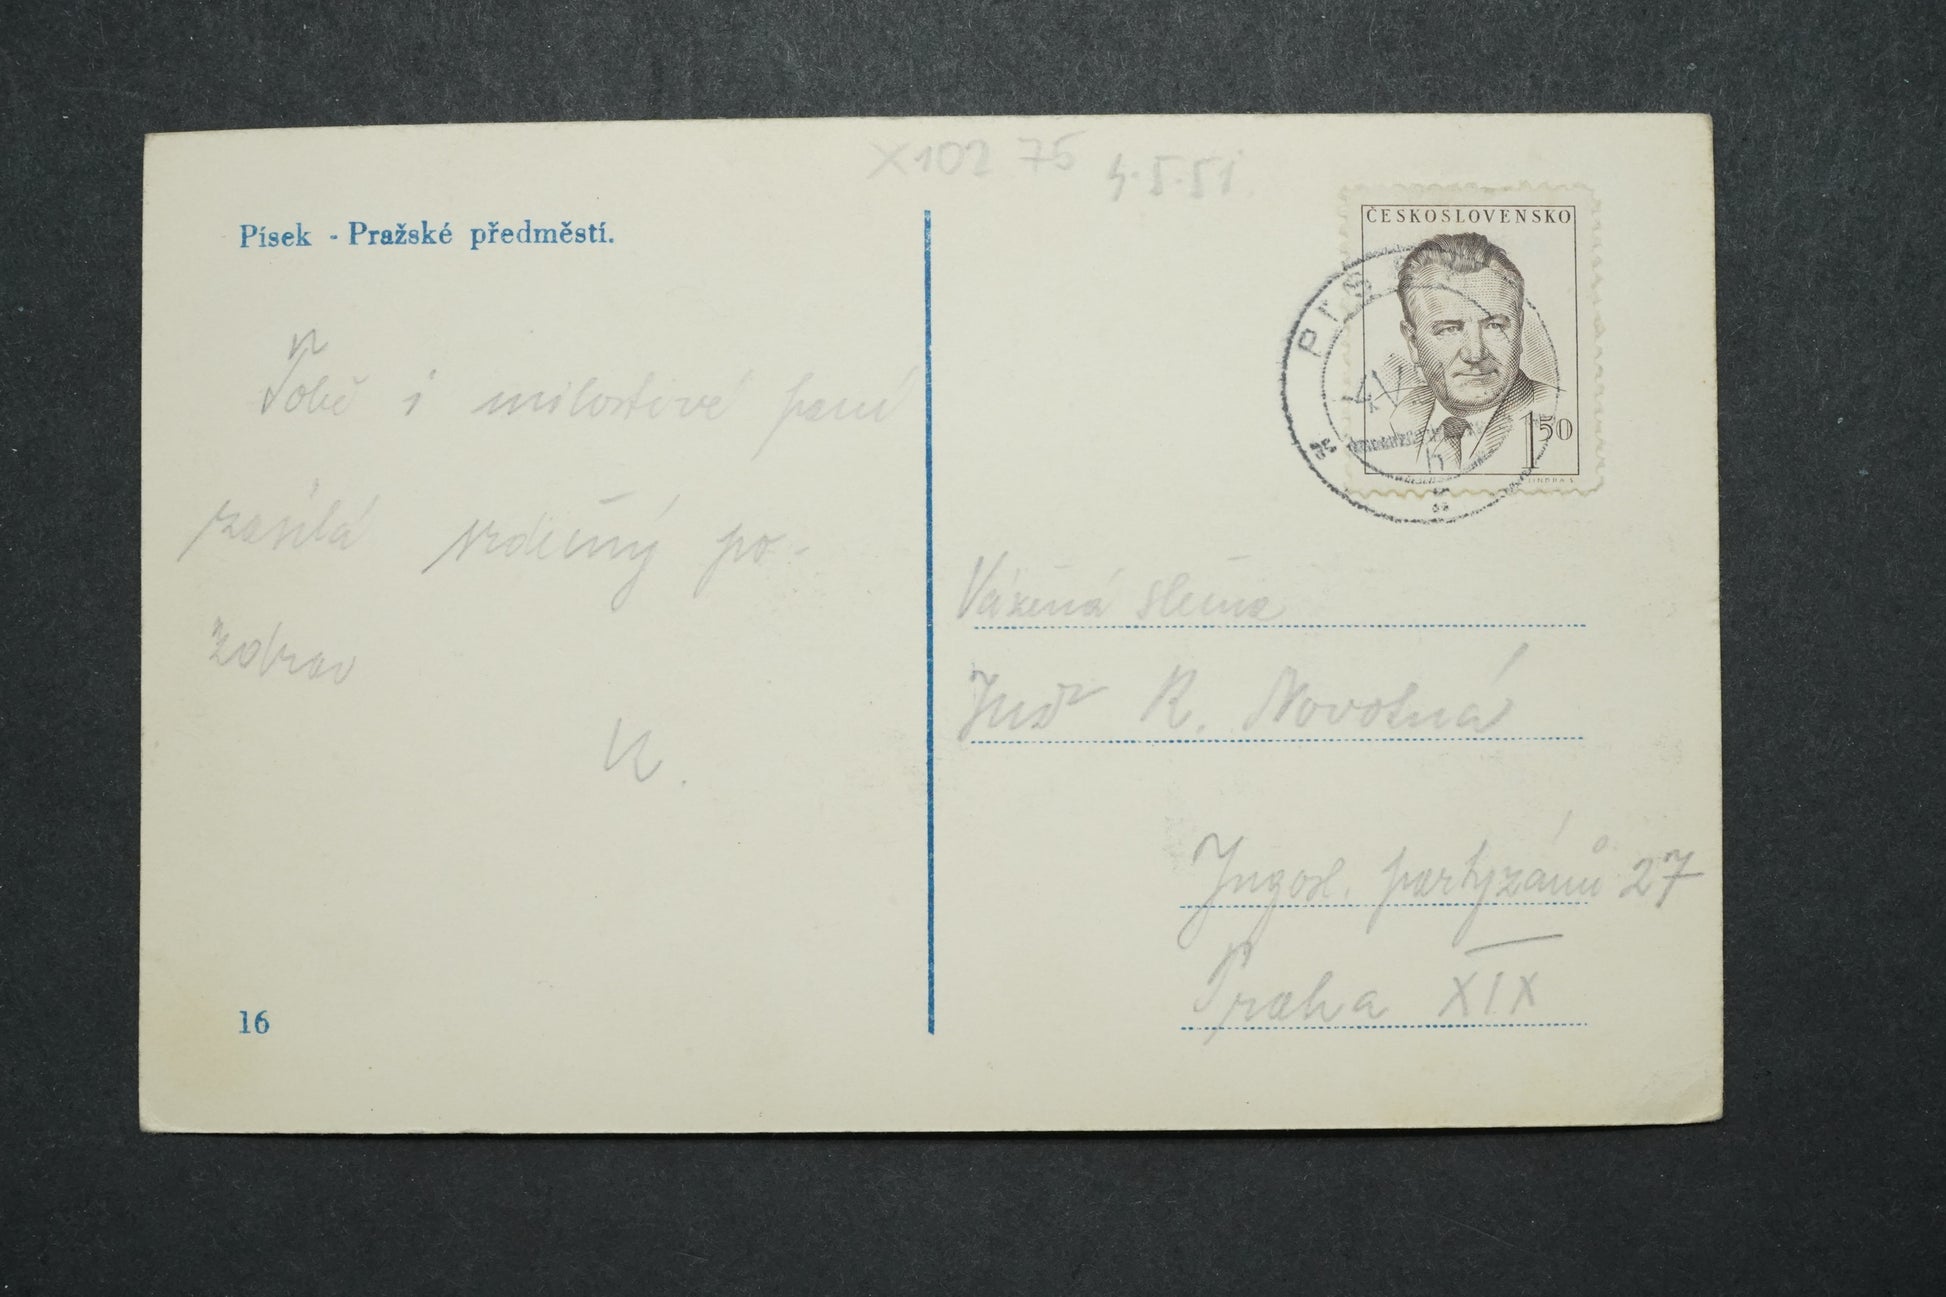 X102 75 4.5.51.
Písek - Pražské předměstí.
ČESKOSLOVENSKO
1.50
PÍS
Tobě i milostivé paní
zasílá srdečný po-
zdrav
16
Vážená slečna
JUDr R. Novotná
Jugosl. partyzánů 27
Praha XIX